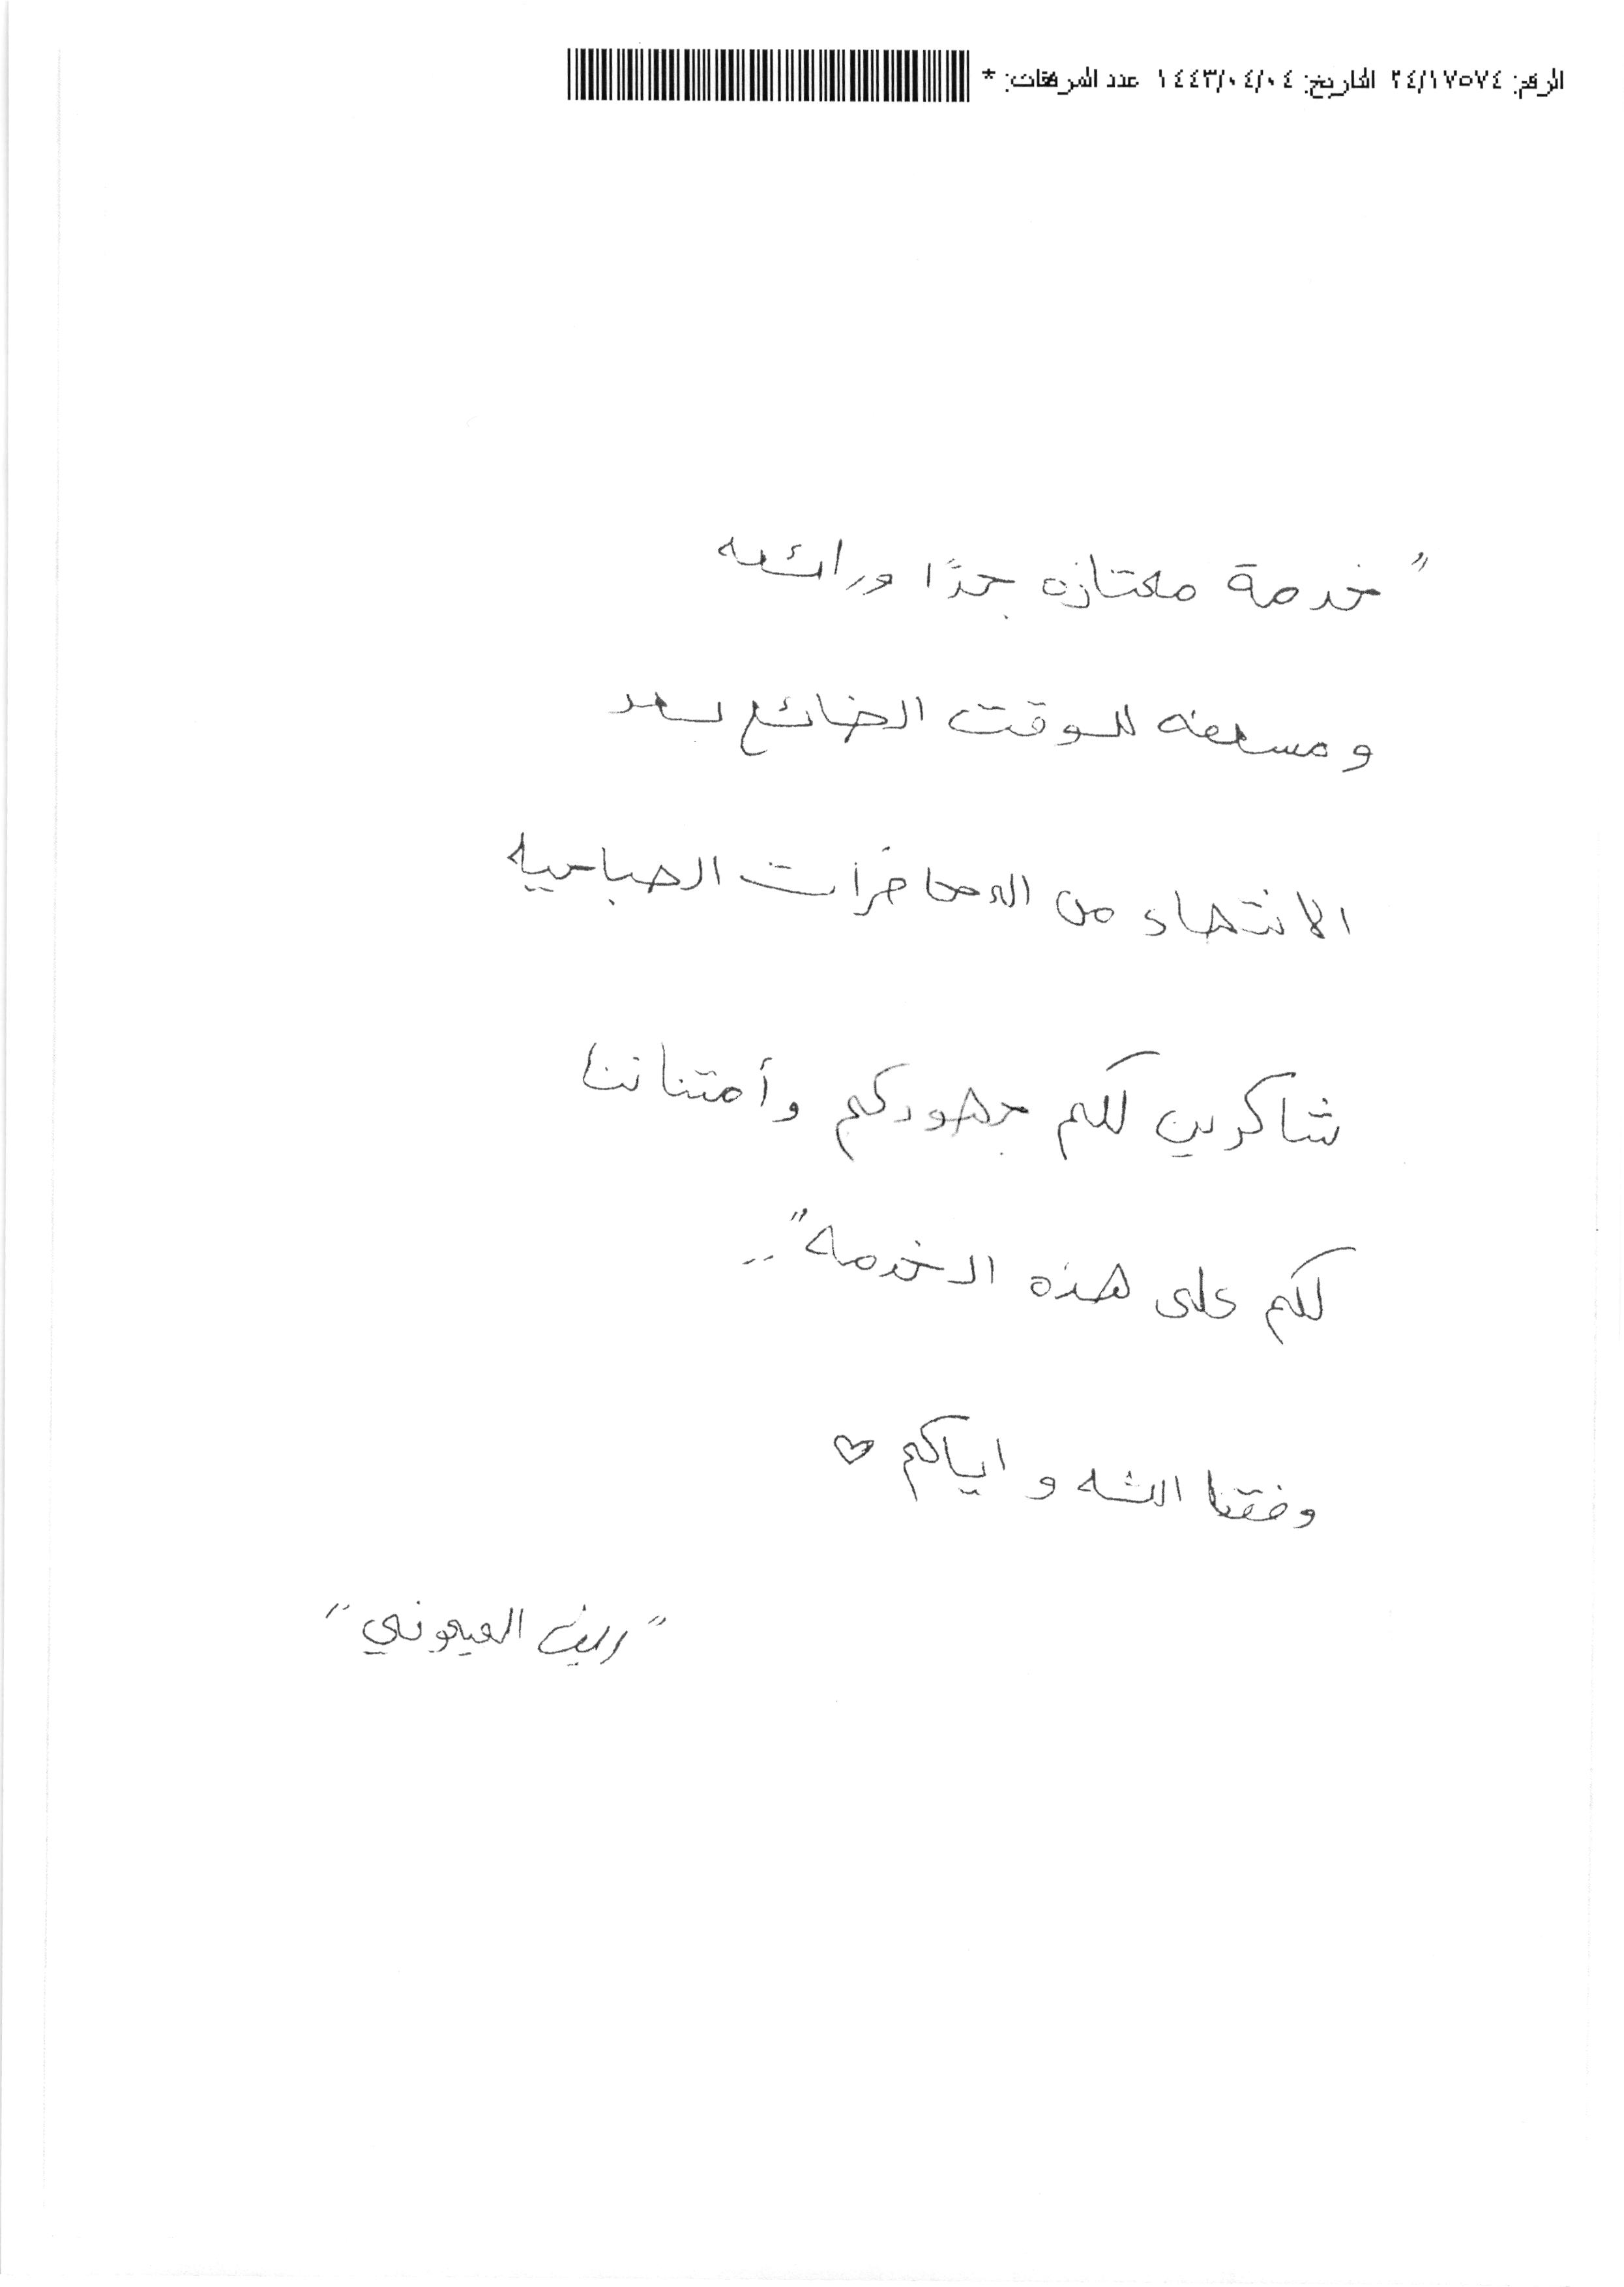 الرقم: ٢٤/١٧٥٧٤ التاريخ: ١٤٤٣/٠٤/٠٤ عدد المرفقات: *
" خدمة ممتازه جدًا ورائعه
ومسعفه للوقت الضائع بعد
الانتهاء من المحاضرات الصباحيه
شاكرين لكم جهودكم وأمتناننا
لكم على هذه الخدمه" ..
وفقنا الله و اياكم ♡
" ريف العيوني "